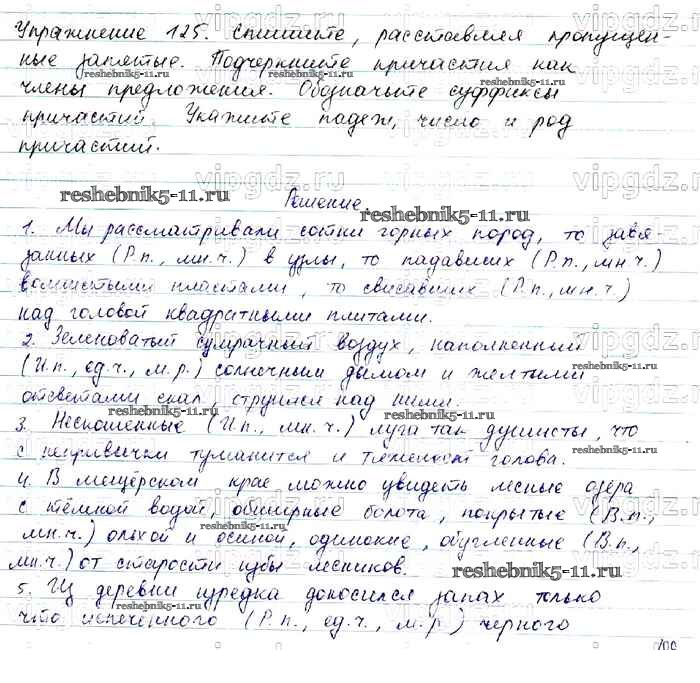 Упражнение 125. Спишите, расставляя пропущен-
ные запятые. Подчеркните причастия как
reshebnik5-11.ru
reshebnik5-11.ru
члены предложения. Обозначьте суффиксы
причастий. Укажите падеж, число и род
причастий.
reshebnik5-11.ru
Решение.
reshebnik5-11.ru
1. Мы рассматривали сотни горных пород, то завя-
занных (Р.п., мн.ч.) в узлы, то падавших (Р.п., мн.ч.)
волнистыми пластами, то свисавших (Р.п., мн.ч.)
над головой квадратными плитами.
2. Зеленоватый сумрачный воздух, наполненный
(И.п., ед.ч., м.р.) солнечным дымом и желтыми
reshebnik5-11.ru
отсветами скал, струился над ними.
reshebnik5-11.ru
3. Нескошенные (И.п., мн.ч.) луга так душисты, что
с непривычки туманится и тяжелеет голова.
4. В мещёрском крае можно увидеть лесные озёра
с тёмной водой, обширные болота, покрытые (В.п.,
reshebnik5-11.ru
мн.ч.) ольхой и осиной, одинокие, обугленные (В.п.,
мн.ч.) от старости избы лесников.
reshebnik5-11.ru
5. Из деревни изредка доносился запах только
reshebnik5-11.ru
что испеченного (Р.п., ед.ч., м.р.) черного
vipgdz.ru